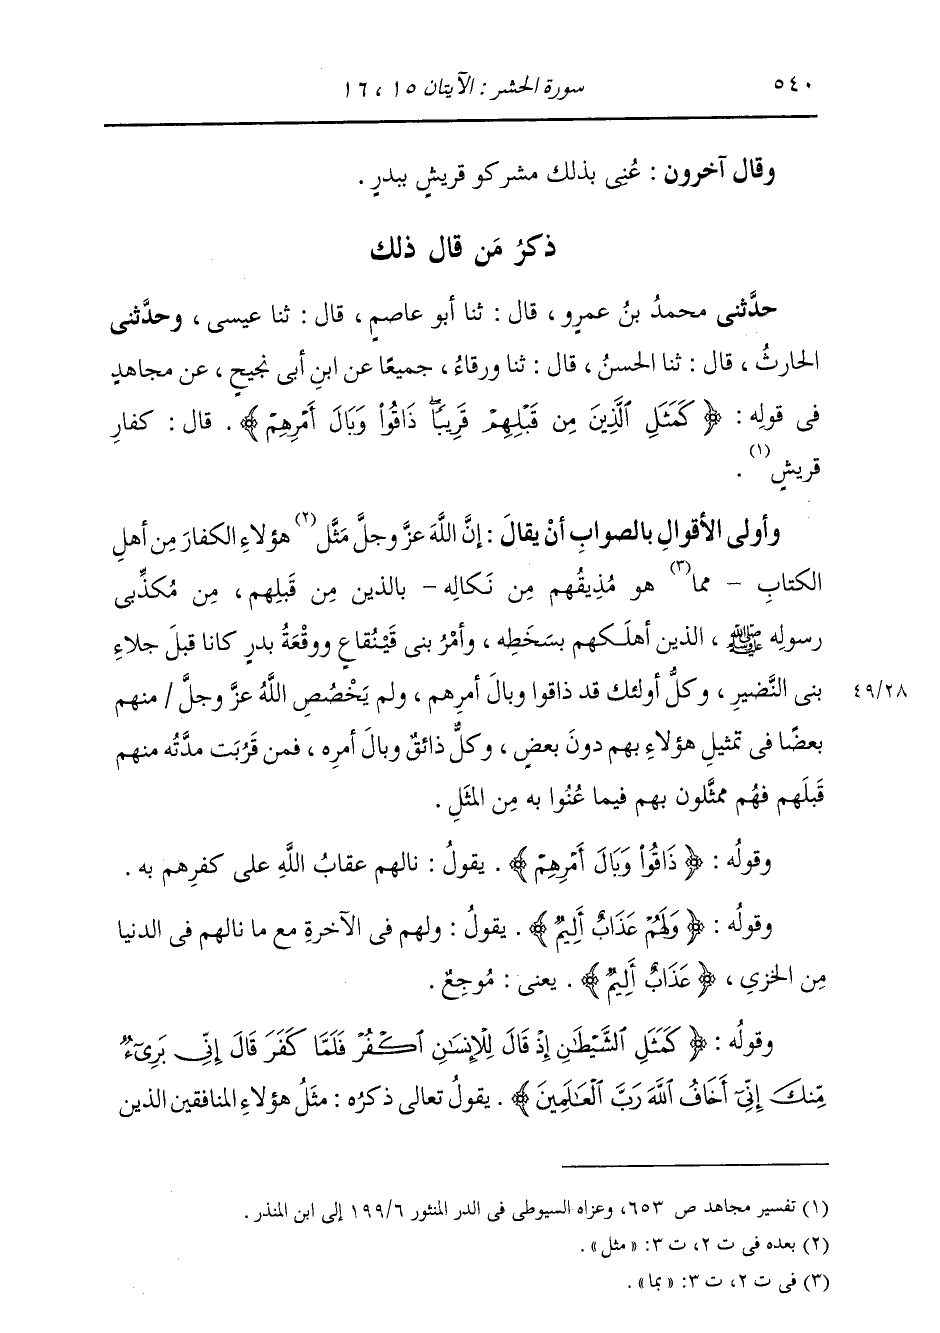 ٥٤٠ سورة الحشر : الآيتان ١٥ ، ١٦
وقال آخرون : عُنِى بذلك مشركو قريشٍ ببدرٍ .
ذكرُ مَن قال ذلك
حدَّثنى محمدُ بنُ عمرٍو ، قال : ثنا أبو عاصمٍ ، قال : ثنا عيسى ، وحدَّثنى
الحارثُ ، قال : ثنا الحسنُ ، قال : ثنا ورقاءُ ، جميعًا عن ابنِ أبى نجيحٍ ، عن مجاهدٍ
فى قولِه : ﴿ كَمَثَلِ ٱلَّذِينَ مِن قَبْلِهِمْ قَرِيبًاۖ ذَاقُوا۟ وَبَالَ أَمْرِهِمْ ﴾ . قال : كفارِ
قريشٍ(١) .
وأولى الأقوالِ بالصوابِ أنْ يقالَ : إنَّ اللَّهَ عزَّ وجلَّ مَثَّل(٢) هؤلاءِ الكفارَ مِن أهلِ
الكتابِ - مما(٣) هو مُذِيقُهم مِن نَكالِه - بالذين مِن قَبلِهم ، مِن مُكذِّبى
رسولِه ﷺ ، الذين أهلَكهم بسَخَطِه ، وأمْرُ بنى قَيْنُقاعٍ ووقْعَةُ بدرٍ كانا قبلَ جلاءِ
بنى النَّضيرِ ، وكلُّ أولئك قد ذاقوا وبالَ أمرِهم ، ولم يَخْصُصِ اللَّهُ عزَّ وجلَّ / منهم ٤٩/٢٨
بعضًا فى تمثيلِ هؤلاءِ بهم دونَ بعضٍ ، وكلٌّ ذائقٌ وبالَ أمرِه ، فمن قَرُبَت مدَّتُه منهم
قَبلَهم فهُم ممثَّلون بهم فيما عُنُوا به مِن المثَلِ .
وقولُه : ﴿ ذَاقُوا۟ وَبَالَ أَمْرِهِمْ ﴾ . يقولُ : نالهم عقابُ اللَّهِ على كفرِهم به .
وقولُه : ﴿ وَلَهُمْ عَذَابٌ أَلِيمٌ ﴾ . يقولُ : ولهم فى الآخرةِ مع ما نالهم فى الدنيا
مِن الخزيِ ، ﴿ عَذَابٌ أَلِيمٌ ﴾ . يعنى : مُوجِعٌ .
وقولُه : ﴿ كَمَثَلِ ٱلشَّيْطَٰنِ إِذْ قَالَ لِلْإِنسَٰنِ ٱكْفُرْ فَلَمَّا كَفَرَ قَالَ إِنِّى بَرِىٓءٌ
مِّنكَ إِنِّىٓ أَخَافُ ٱللَّهَ رَبَّ ٱلْعَٰلَمِينَ ﴾ . يقولُ تعالى ذكرُه : مثَلُ هؤلاءِ المنافقين الذين
(١) تفسير مجاهد ص ٦٥٣، وعزاه السيوطى فى الدر المنثور ١٩٩/٦ إلى ابن المنذر .
(٢) بعده فى ت ٢، ت ٣: « مثل» .
(٣) فى ت ٢، ت ٣: « بما» .